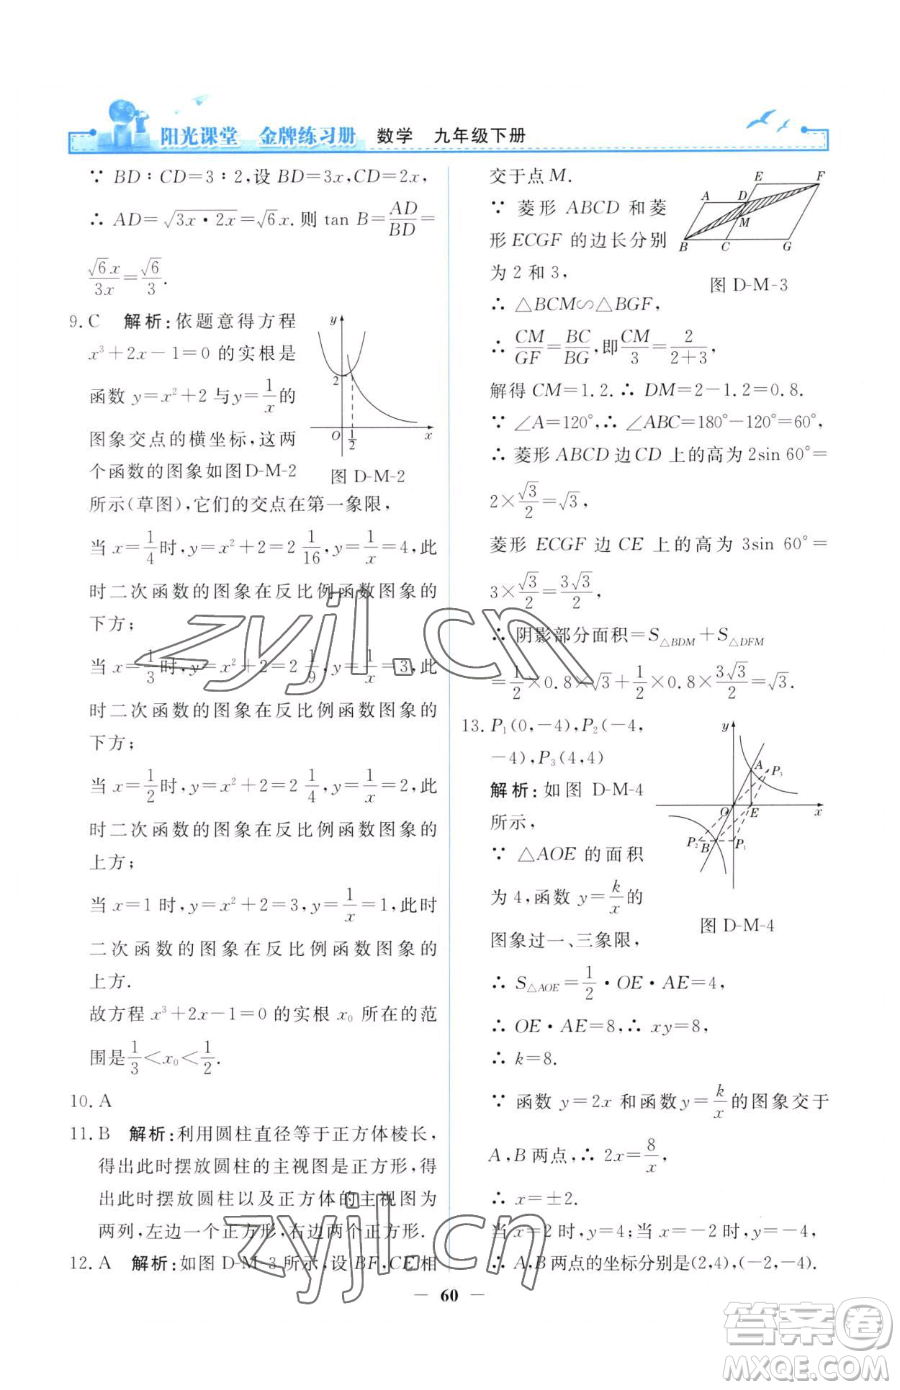 阳光课堂 金牌练习册 数学 九年级下册
∵ BD∶CD=3∶2,设 BD=3x,CD=2x,
∴ AD=√(3x·2x)=√6x.则 tan B=AD/BD=
√6x/3x=√6/3.
9. C 解析:依题意得方程
x³+2x-1=0 的实根是
函数 y=x²+2 与 y=1/x 的
图象交点的横坐标,这两
个函数的图象如图 D-M-2
所示(草图),它们的交点在第一象限,
y
2
O
1/2
x
图 D-M-2
当 x=1/4 时,y=x²+2=2 1/16,y=1/x=4,此
时二次函数的图象在反比例函数图象的
下方;
当 x=1/3 时,y=x²+2=2 1/9,y=1/x=3,此
时二次函数的图象在反比例函数图象的
下方;
当 x=1/2 时,y=x²+2=2 1/4,y=1/x=2,此
时二次函数的图象在反比例函数图象的
上方;
当 x=1 时,y=x²+2=3,y=1/x=1,此时
二次函数的图象在反比例函数图象的
上方.
故方程 x³+2x-1=0 的实根 x₀ 所在的范
围是 1/3<x₀<1/2.
10. A
11. B 解析:利用圆柱直径等于正方体棱长,
得出此时摆放圆柱的主视图是正方形,得
出此时摆放圆柱以及正方体的主视图为
两列,左边一个正方形,右边两个正方形.
12. A 解析:如图 D-M-3 所示,设 BF,CE 相
交于点 M.
∵ 菱形 ABCD 和菱
形 ECGF 的边长分别
为 2 和 3,
E
F
A
D
M
B
C
G
图 D-M-3
∴ △BCM∽△BGF,
∴ CM/GF=BC/BG,即 CM/3=2/(2+3),
解得 CM=1.2.∴ DM=2-1.2=0.8.
∵ ∠A=120°,∴ ∠ABC=180°-120°=60°,
∴ 菱形 ABCD 边 CD 上的高为 2sin 60°=
2×√3/2=√3,
菱形 ECGF 边 CE 上的高为 3sin 60°=
3×√3/2=3√3/2,
∴ 阴影部分面积=S△BDM+S△DFM
=1/2×0.8×√3+1/2×0.8×3√3/2=√3.
13. P₁(0,-4),P₂(-4,
-4),P₃(4,4)
解析:如图 D-M-4
所示,
∵ △AOE 的面积
为 4,函数 y=k/x 的
图象过一、三象限,
y
A
P₃
O
E
x
P₂
B
P₁
图 D-M-4
∴ S△AOE=1/2·OE·AE=4,
∴ OE·AE=8,∴ xy=8,
∴ k=8.
∵ 函数 y=2x 和函数 y=k/x 的图象交于
A,B 两点,∴ 2x=8/x,
∴ x=±2.
当 x=2 时,y=4;当 x=-2 时,y=-4,
∴ A,B 两点的坐标分别是(2,4),(-2,-4).
60
zyjl.cn
zyjl.cn
答案圈
MXQE.COM